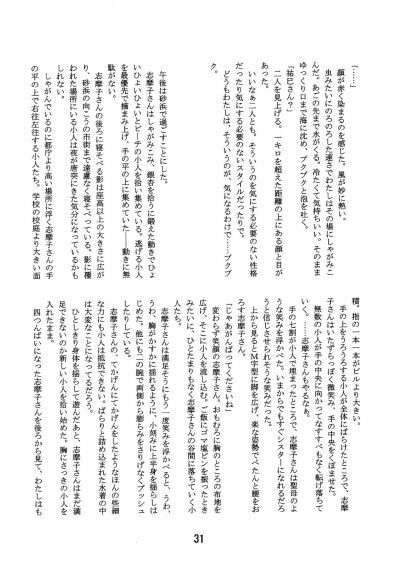 「……」
　顔が赤く染まるのを感じた。風が妙に熱い。
　虫みたいにのろのろした速さでわたしはその場にしゃがみこ
んだ。あごの先まで水がくる。冷たくて気持ちいい。そのまま
ゆっくり口まで海に沈め、ブクブクと泡を吐く。
「祐巳さん？」
　二人を見上げる。一キロを超えた距離の上にある顔と目が
あった。
　いいなぁ二人とも。そういうのを気にする必要のない性格
だったり気にする必要のないスタイルだったりで。
　どうもわたしは、そういうのが、気になるわけで……ブクブ
ク。
午後は砂浜で過ごすことにした。
　志摩子さんはしゃがみこみ、銀杏を拾うに鍛えた動きでひょ
いひょいひょいとビーチの小人を拾い集めている。逃げる小人
を最優先で摘まみ上げ、手の平の上に集めていた――動きに無
駄がない。
　志摩子さんの後ろに寝そべる影は座高以上の大きさに広が
り、砂浜の向こうの市街まで遠慮なく寝そべっている。影に覆
われた場所にいる小人は夜が唐突にきた気分になっているかも
しれない。
　しゃがんでいるのに都庁より高い場所に浮く志摩子さんの手
の平の上で右往左往する小人たち。学校の校庭より大きい面
積。指の一本一本がビルより大きい。
　手の上をうろうろする小人が全体にばらけたところで、志摩
子さんはいたずらっぽく微笑み、手の中央をくぼませた。
　無数の小人が手の中央に向かってなすすべもなく転げ落ちて
いく。……志摩子さんもやるなぁ。
　手の七割が小人で埋まったところで、志摩子さんは聖母のよ
うな笑みを浮かべた。いまからでもすぐシスターになれるだろ
うと信じさせられそうな笑みだった。
　上から見るとM字型に脚を広げ、楽な姿勢でぺたんと腰をお
ろす志摩子さん。
「じゃあがんばってくださいね」
　変わらず笑顔の志摩子さん。おもむろに胸のところの布地を
広げ、そこに小人を流し込む。ご飯にゴマ塩ビンを振ったとき
みたいに、ひとたまりもなく志摩子さんの谷間に落ちていく小
人たち。
　志摩子さんは満足そうにもう一度笑みを浮かべると、うわ、
うわ、胸がかすかに揺れるように、小刻みに上半身を揺らしは
じめた。他にも二の腕で両側から膨らみをさりげなくプッシュ
したりしている。
　志摩子さんの、てかげんにてかげんをしたようなほんの些細
な力にも小人は抵抗できない。ぱらりと詰め込まれた水着の中
は大変なことになってるだろう。
　ひとしきり身体を揺らして遊んだあと、志摩子さんはまだ満
足できないのか新しい小人を拾い始めた。胸にさっきの小人を
入れたまま。
　四つんばいになった志摩子さんを後ろから見て、わたしはも
31